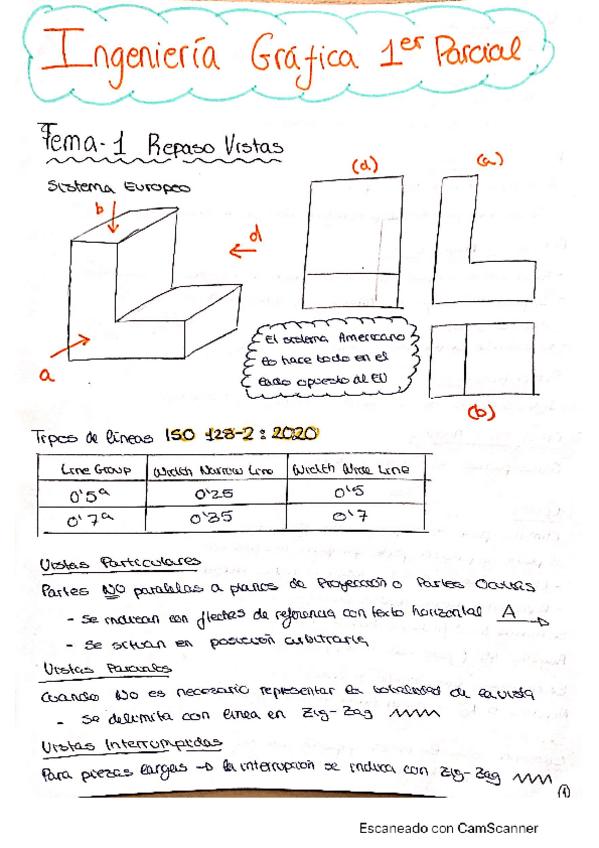 Ingeniería Gráfica 1er Parcial
Tema-1 Repaso Vistas
Sistema Europeo
b
d
a
(d)
(a)
El sistema Americano
es hace todo en el
lado opuesto al EU
(b)
Tipos de líneas ISO 128-2:2020
Line Group Width Narrow Line Width Wide Line
0'5ª 0'25 0'5
0'7ª 0'35 0'7
Vistas Particulares
Partes NO paralelas a planos de Proyección o Partes Ocultas
- Se indican con flechas de referencia con texto horizontal A
- Se situan en posición arbitraria
Vistas Parciales
Cuando NO es necesario representar la totalidad de la vista
- Se delimita con línea en Zig-Zag
Vistas Interrumpidas
Para piezas largas → la interrupción se indica con Zig-Zag
(1)
Escaneado con CamScanner